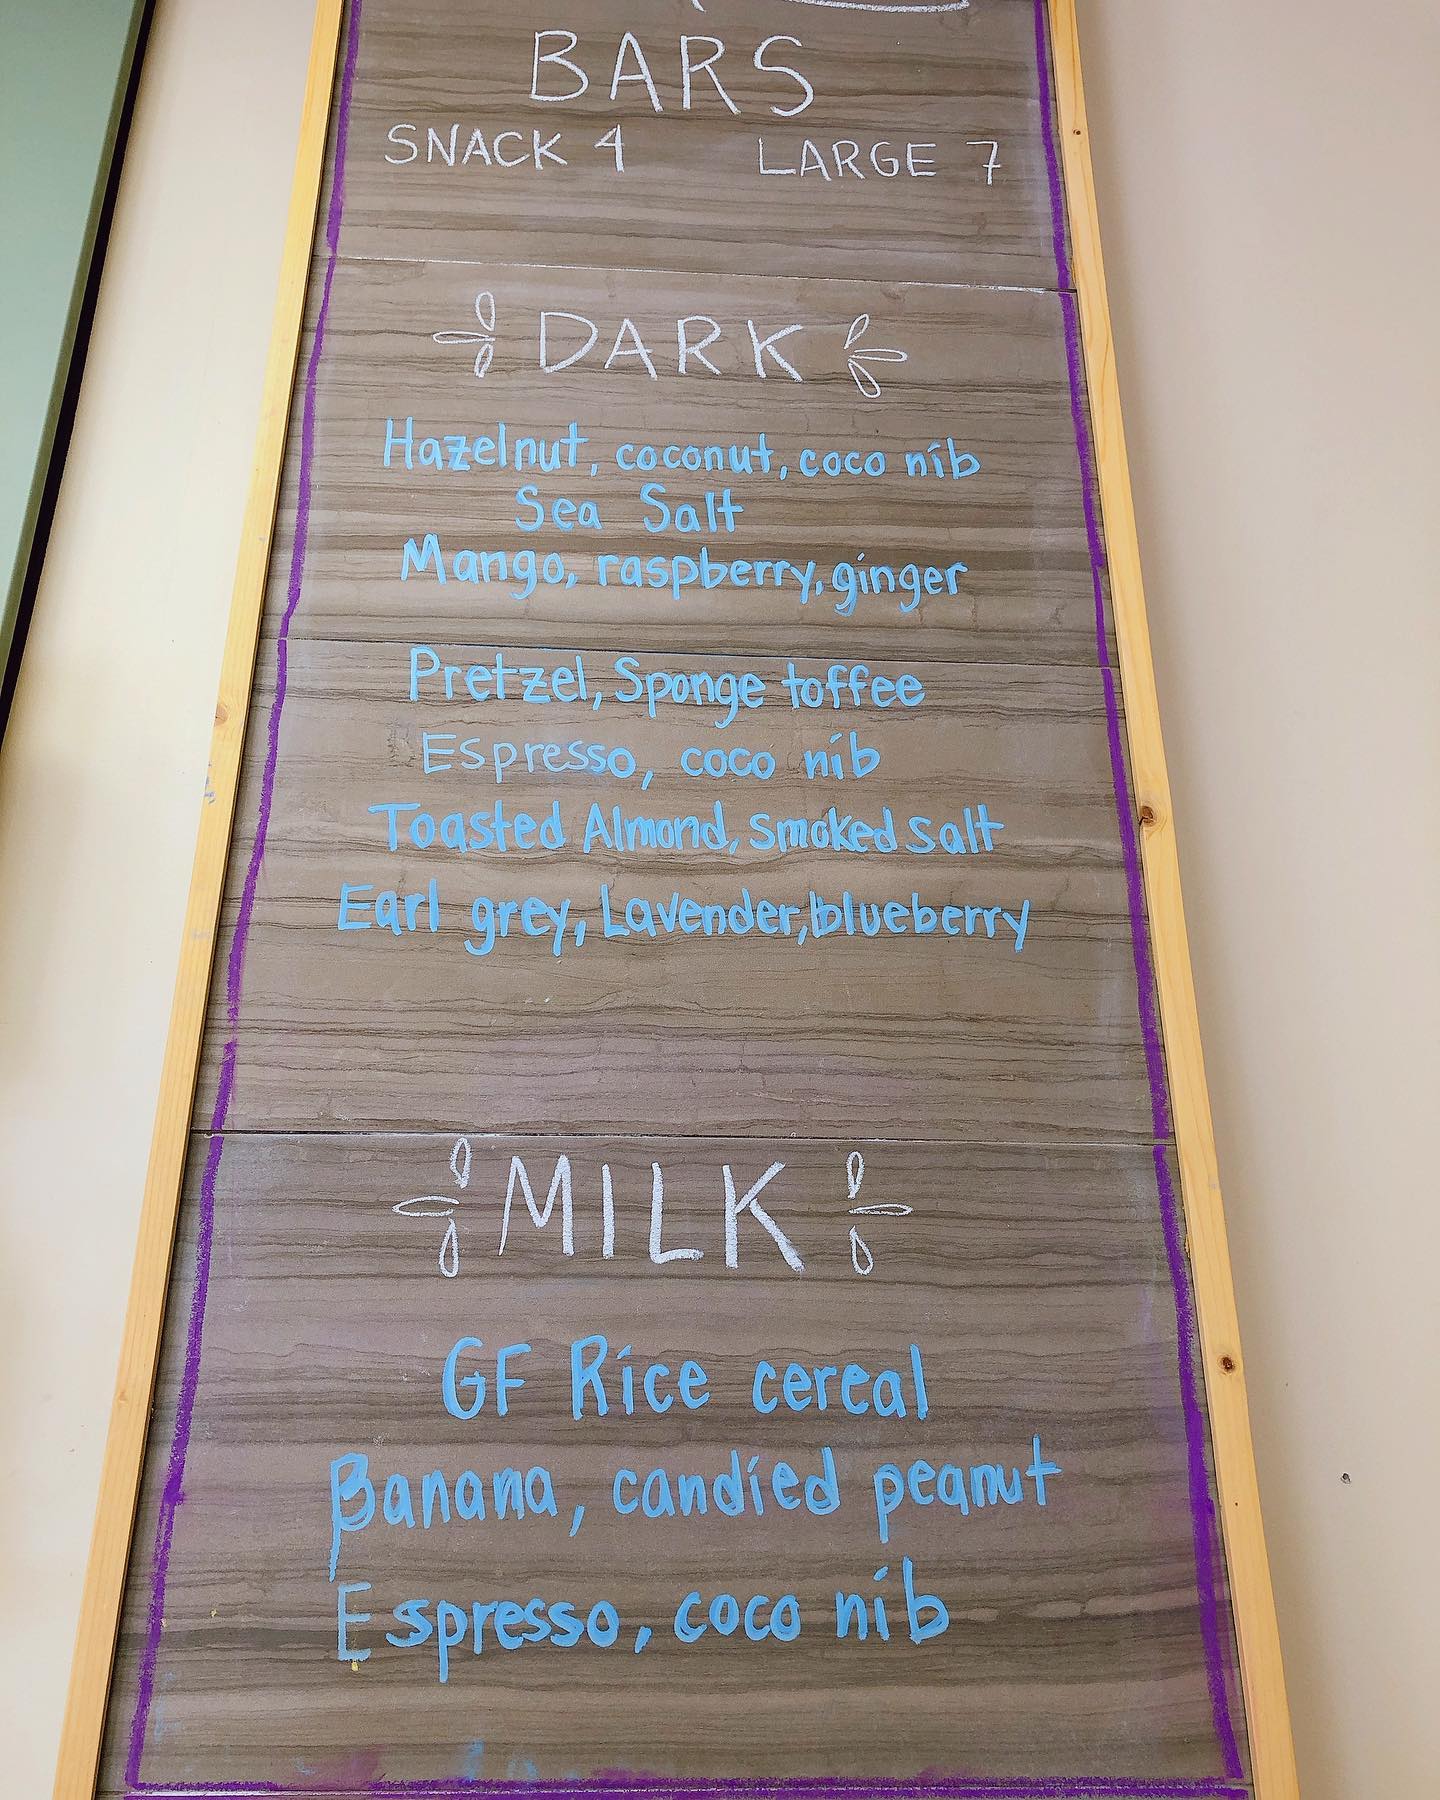 BARS
SNACK 4 LARGE 7
DARK
Hazelnut, coconut, coco nib
Sea Salt
Mango, raspberry, ginger
Pretzel, Sponge toffee
Espresso, coco nib
Toasted Almond, smoked salt
Earl grey, Lavender, blueberry
MILK
GF Rice cereal
Banana, candied peanut
Espresso, coco nib